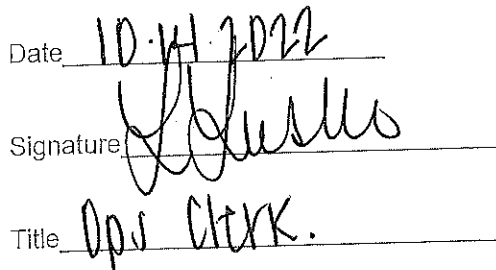 Date 10.14.2022
Signature
Title Ops Clerk.